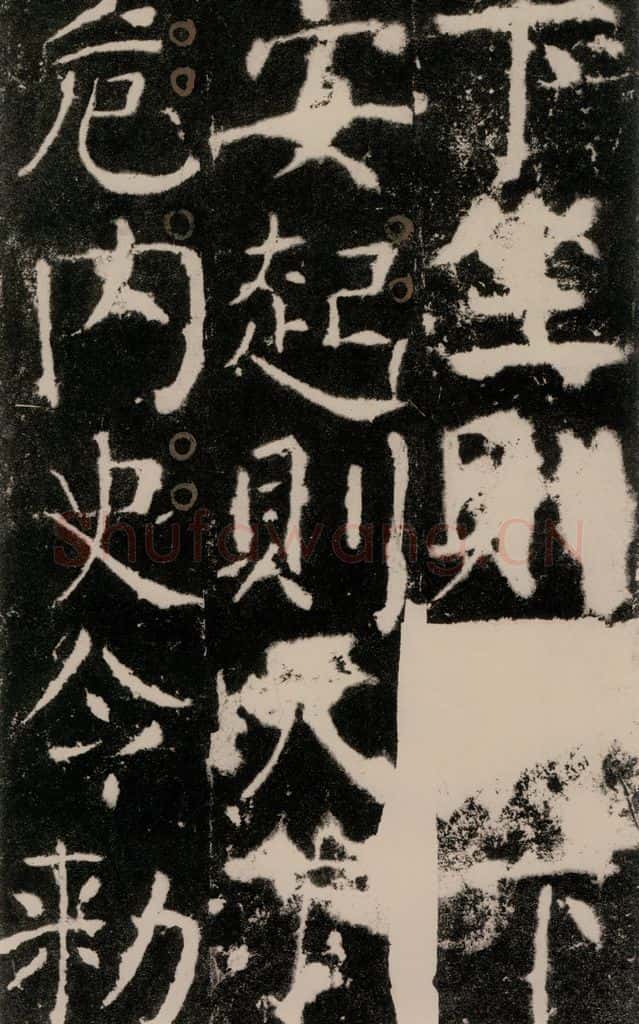 下坐則下
安起則天
危内史令勑
Shufawang.CN